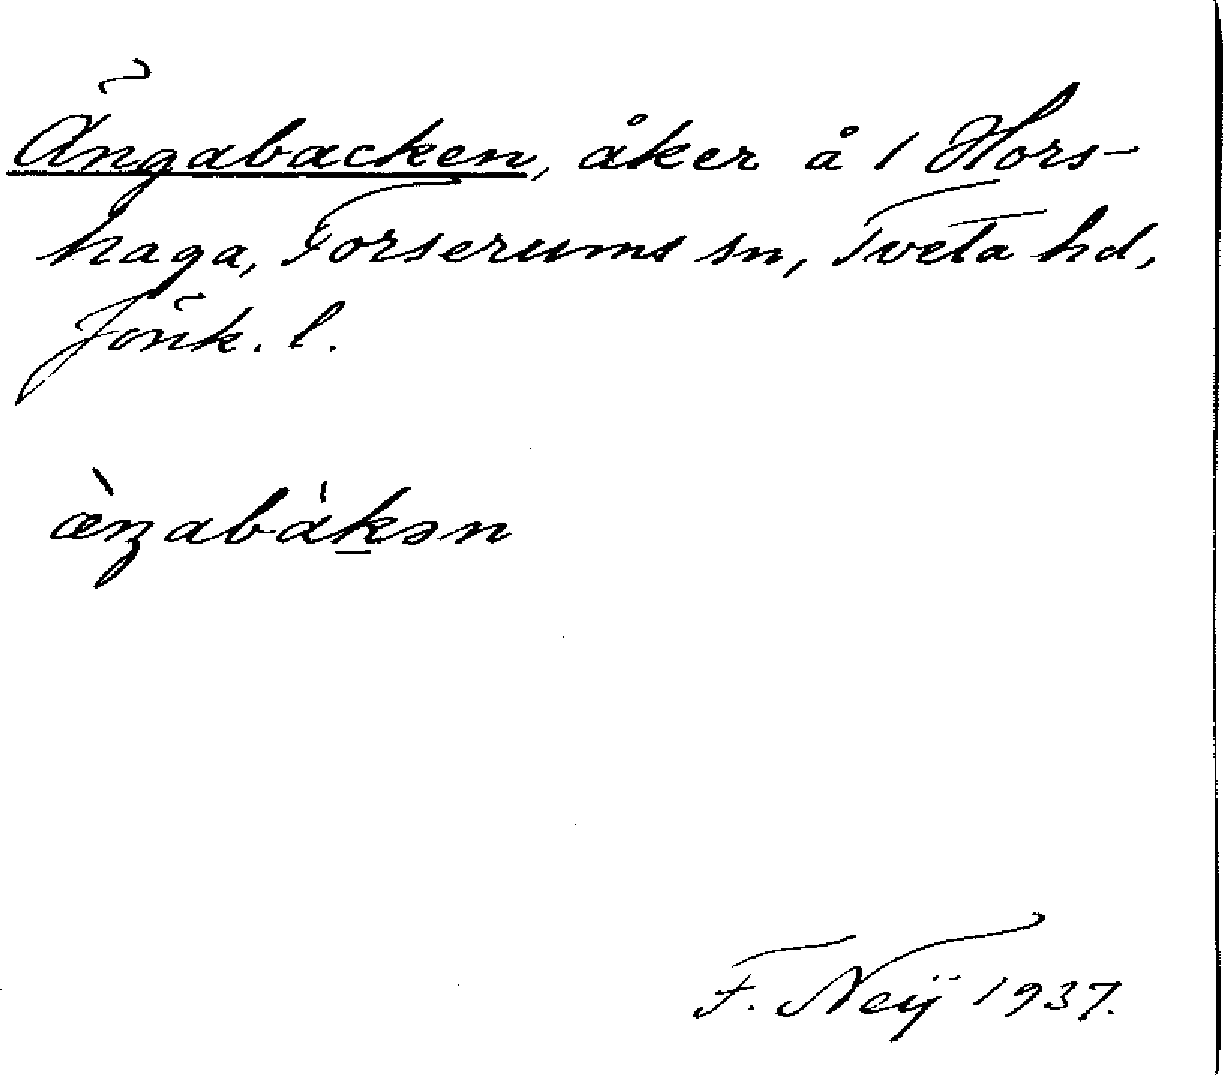 Ängabacken, åker å 1 Hors-
haga, Forserums sn, Tveta hd,
Jönk. l.
æ̀ŋabák̠ən
F. Neij 1937.